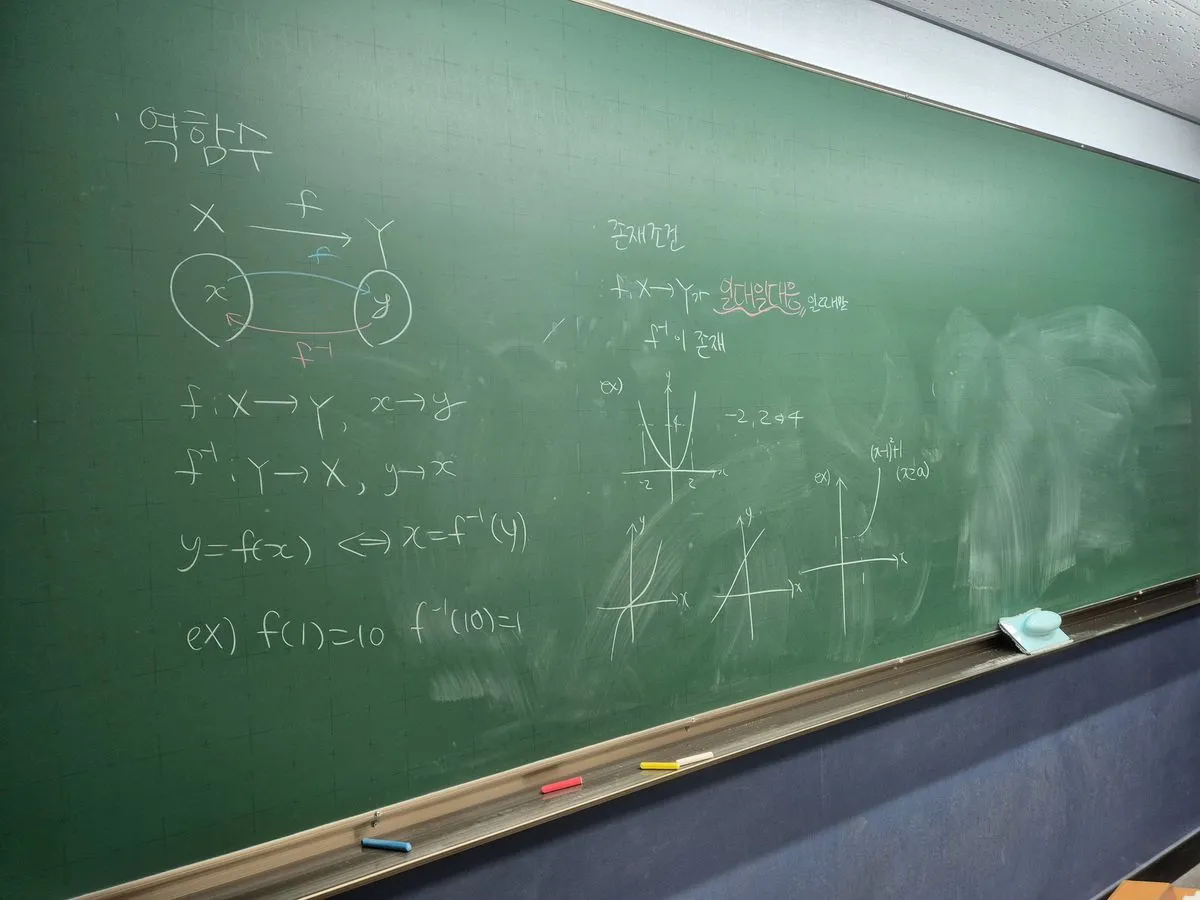 역함수
X f Y
f
x y
f⁻¹
f : X → Y, x → y
f⁻¹ : Y → X, y → x
y = f(x) ⟺ x = f⁻¹(y)
ex) f(1) = 10 f⁻¹(10) = 1
존재조건
f : X → Y가 일대일대응, 일 때만
f⁻¹이 존재
ex) y
4
-2 2 x
-2, 2 → 4
y x
y x
ex) (x-1)²+1
(x≥a)
1
1 x